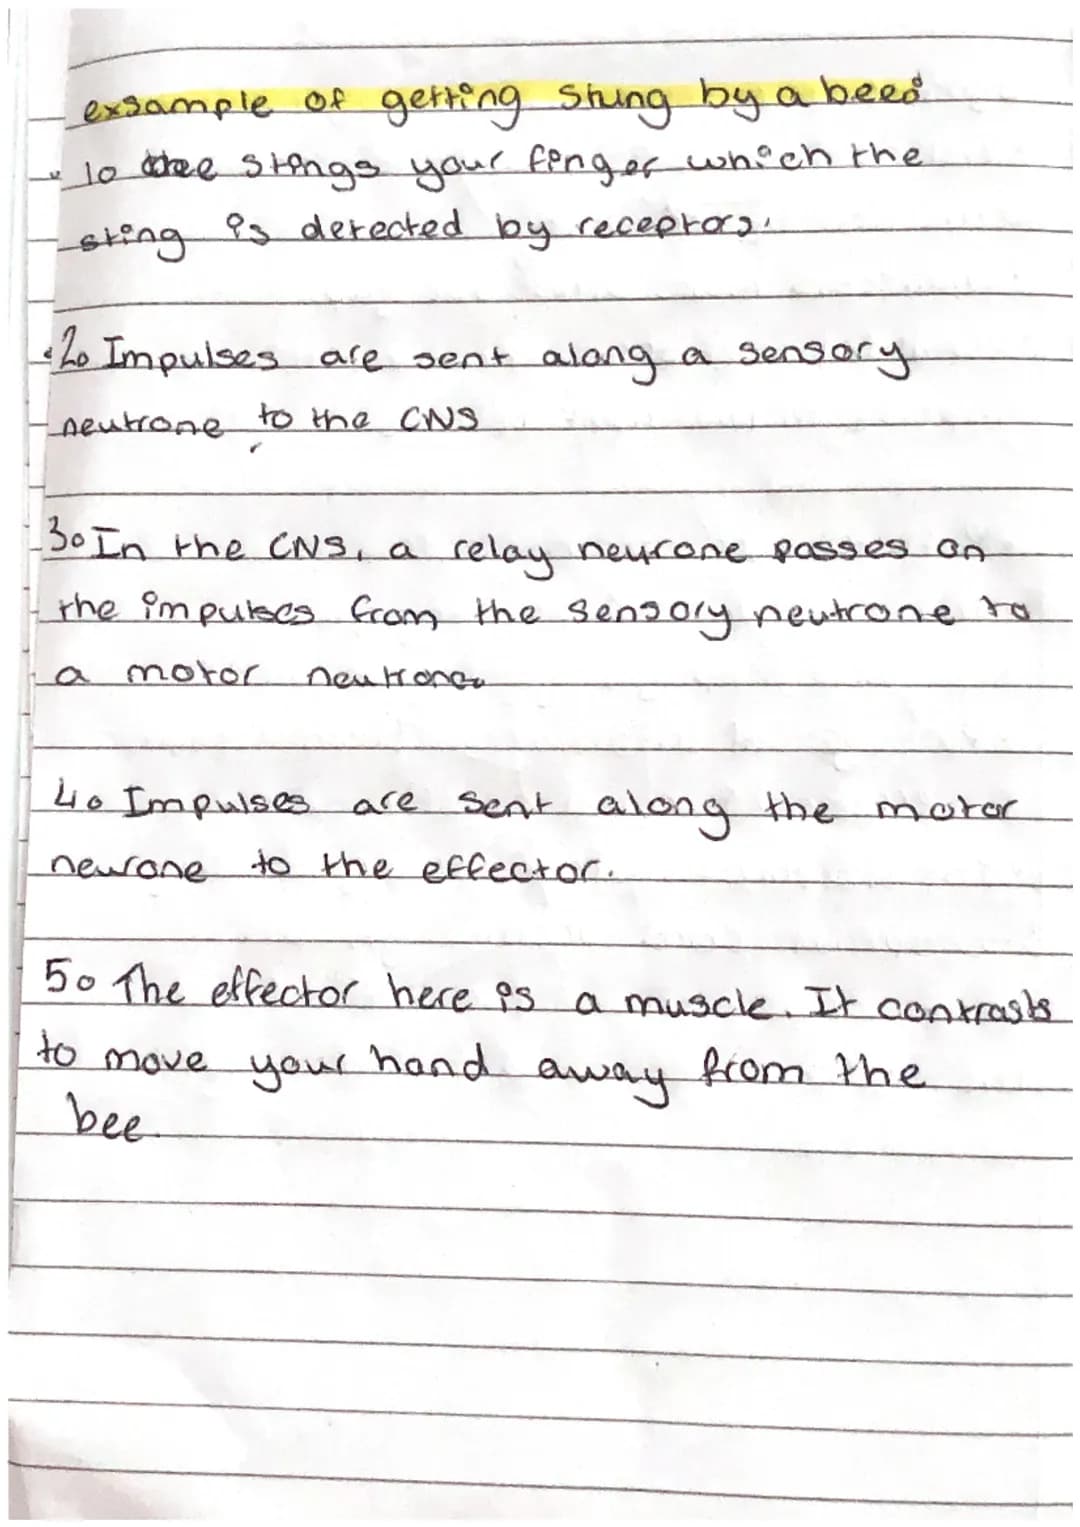 exsample of getting stung by a bee:
1. bee stings your finger which the
sting is detected by receptors.
2. Impulses are sent along a sensory
neutrone to the CNS
3. In the CNS, a relay neurone passes on
the impulses from the sensory neutrone to
a motor neutrone.
4. Impulses are sent along the motor
neurone to the effector.
5. The effector here is a muscle. It contrasts
to move your hand away from the
bee.